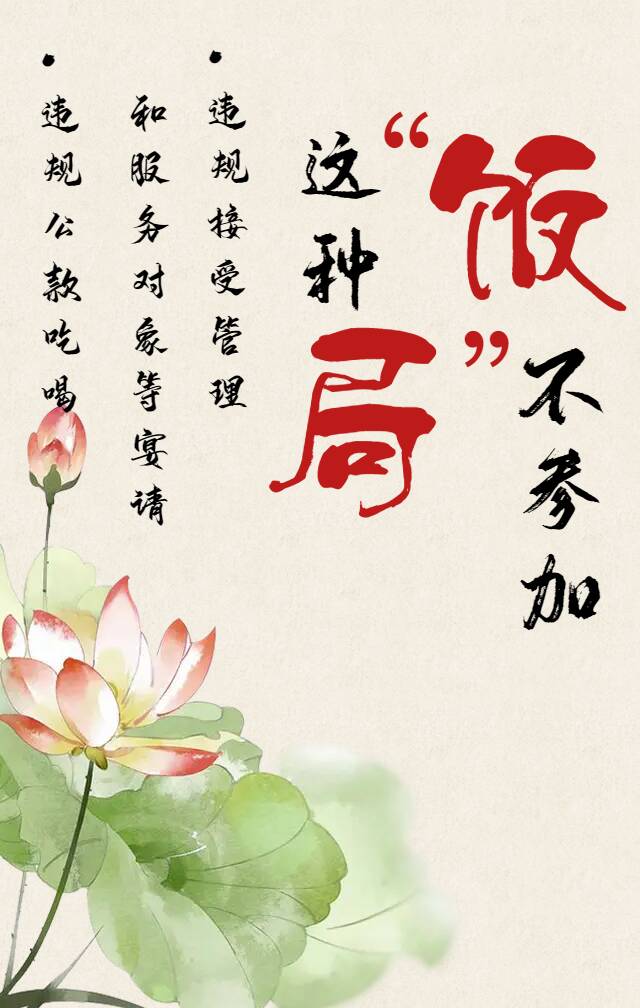 “饭”不参加
这种局
• 违规接受管理
和服务对象等宴请
• 违规公款吃喝